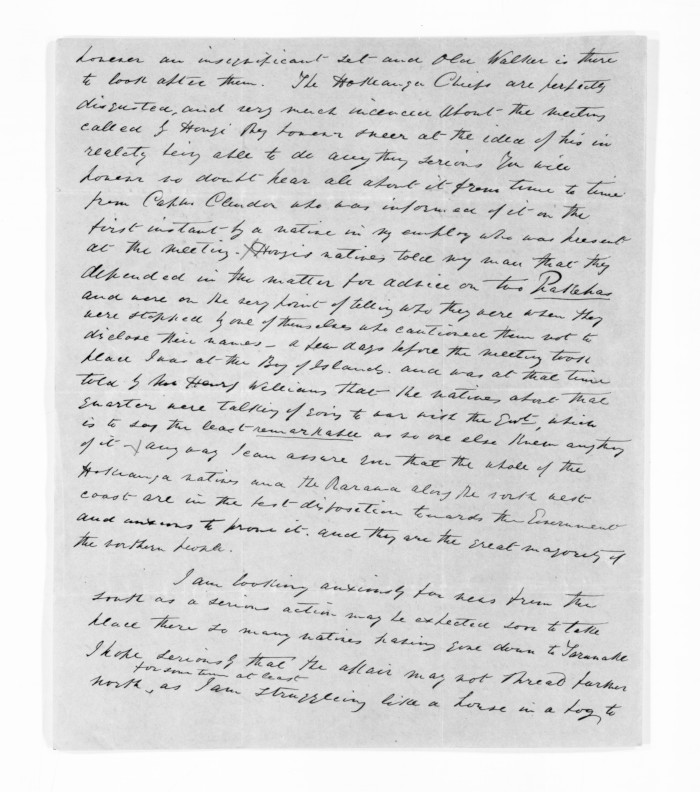 however an insignificant set and Old Walker is there
to look after them. The Hokianga Chiefs are perfectly
disgusted, and very much incensed about the meeting
called by Hongi they however sneer at the idea of his in
reality being able to do anything serious You will
however no doubt hear all about it from time to time
from Captn Clendon who was informed of it on the
first instant by a native in my employ who was present
at the meeting. Hongis natives told my man that they
depended in the matter for advice on two Pakehas
and were on the very point of telling who they were when they
were stopped by one of themselves who cautioned them not to
disclose their names - a few days before the meeting took
place I was at the Bay of Islands. and was at that time
told by Henry Williams that the natives about that
quarter were talking of going to war with the Govt, which
is to say the least remarkable as no one else knew anything
of it - any way I can assure you that the whole of the
Hokianga natives and the Rarawa along the north west
coast are in the best disposition towards the Government
and anxious to prove it. and they are the great majority of
the northern people.
I am looking anxiously for news from the
south as a serious action may be expected soon to take
place there so many natives having gone down to Taranaki
I hope seriously that the affair may not spread farther
for some time at least
north, as I am struggleing like a horse in a bog, to